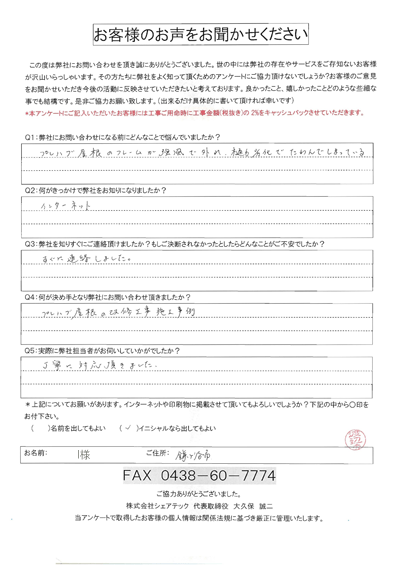 お客様のお声をお聞かせください
この度は弊社にお問い合わせを頂き誠にありがとうございました。世の中には弊社の存在やサービスをご存知ないお客様
が沢山いらっしゃいます。その方たちに弊社をよく知って頂くためのアンケートにご協力頂けないでしょうか？お客様のご意見
をお聞かせいただき今後の活動に反映させていただきたいと考えております。良かったこと、嬉しかったことどのような些細な
事でも結構です。是非ご協力お願い致します。（出来るだけ具体的に書いて頂ければ幸いです）
*本アンケートにご記入いただいたお客様には工事ご用命時に工事金額(税抜き)の 2%をキャッシュバックさせていただきます。
Q1：弊社にお問い合わせになる前にどんなことで悩んでいましたか？
プレハブ屋根のフレームが強風で外れ、樋も劣化でたわんでしまっている
Q2：何がきっかけで弊社をお知りになりましたか？
インターネット
Q3：弊社を知りすぐにご連絡頂けましたか？もしご決断されなかったとしたらどんなことがご不安でしたか？
すぐに連絡しました。
Q4：何が決め手となり弊社にお問い合わせ頂きましたか？
プレハブ屋根の改修工事施工事例
Q5：実際に弊社担当者がお伺いしていかがでしたか？
丁寧に対応頂きました。
＊上記についてお願いがあります。インターネットや印刷物に掲載させて頂いてもよろしいでしょうか？下記の中から〇印を
お付下さい。
（　）名前を出してもよい　（✓）イニシャルなら出してもよい
お名前：　I様　ご住所：　鎌ヶ谷市
FAX 0438-60-7774
ご協力ありがとうございました。
株式会社シェアテック 代表取締役 大久保 誠二
当アンケートで取得したお客様の個人情報は関係法規に基づき厳正に管理いたします。